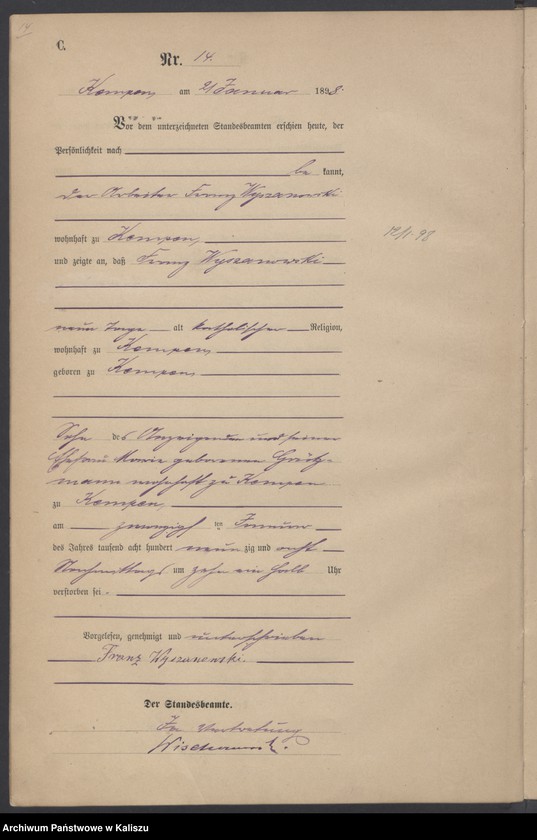 14
C.
Nr. 14.
Kempen, am 21 Januar 1898.
Vor dem unterzeichneten Standesbeamten erschien heute, der
Persönlichkeit nach
be kannt,
der Arbeiter Franz Wyszanowski
wohnhaft zu Kempen,
und zeigte an, daß Franz Wyszanowski
neun Tage alt katholischer Religion,
wohnhaft zu Kempen,
geboren zu Kempen,
Sohn des Anzeigenden und seiner
Ehefrau Marie geborenen
mann wohnhaft zu Kempen
zu Kempen,
am zwanzigsten Januar
des Jahres tausend acht hundert neun zig und acht
Nachmittags um zehn ein halb Uhr
verstorben sei.
Vorgelesen, genehmigt und unterschrieben
Franz Wyszanowski.
Der Standesbeamte.
In Vertretung
Archiwum Państwowe w Kaliszu